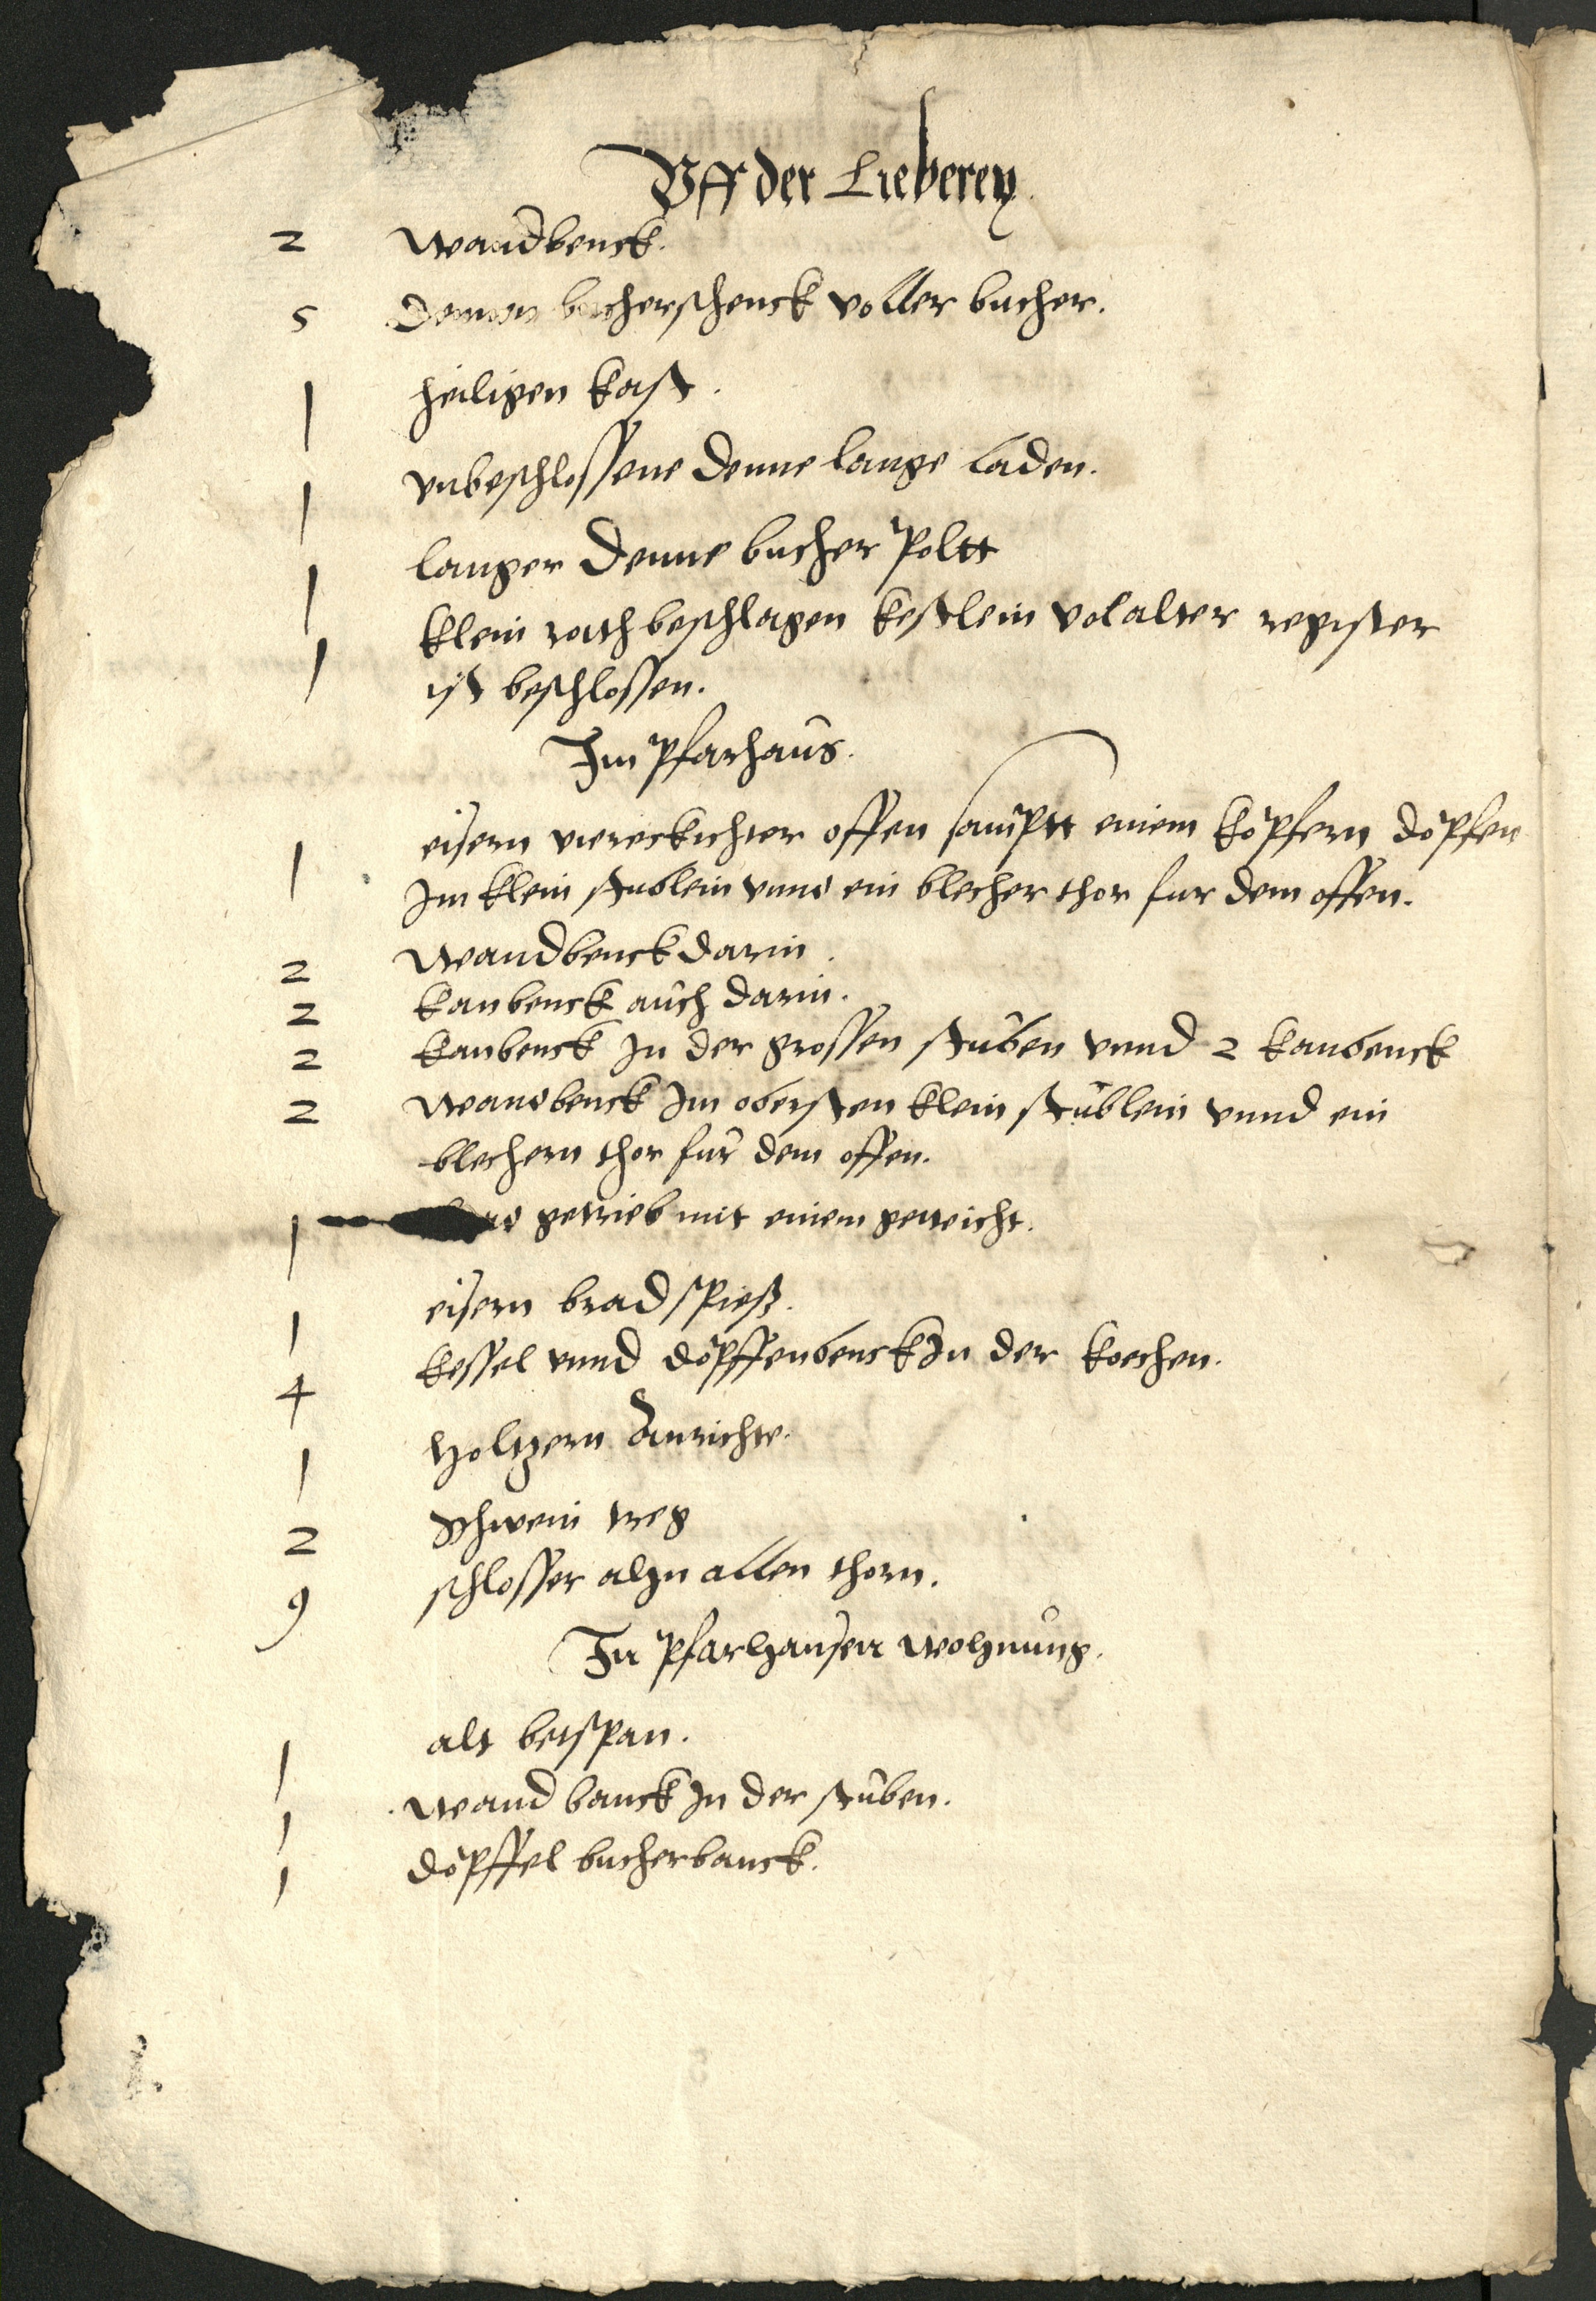 Vff der Lieberey.
2 Wandbenck.
5 Dennen bucherschenck voller bucher.
1 heiligen kast.
1 vnbeschlossene denne lange laden.
1 langer denne bucher Poltt
1 klein roth beschlagen kestlein vol alter register
ist beschlossen.
Im Pfarhaus.
1 eisern viereckichter offen samptt einem köpfern döpfen
Im klein stublein vnnd ein blecher thor fur dem offen.
2 Wandbenck darin.
2 kanbenck auch darin.
2 kanbenck In der grossen stuben vnnd 2 kanbenck
2 Wandbenck Im obersten klein stublein vnnd ein
blechern thor fur dem offen.
1 getrieb mit einem gewicht.
1 eisern bradspieß.
4 kessel vnnd döpffenbenck In der kochen.
1 Holtzern Anrichte.
2 Schwein treg
9 schlosser ahn allen thorn.
In Pfarhausen Wohnung.
1 alt betspan.
1 Wand banck In der stuben.
1 döpffel bucherbanck.